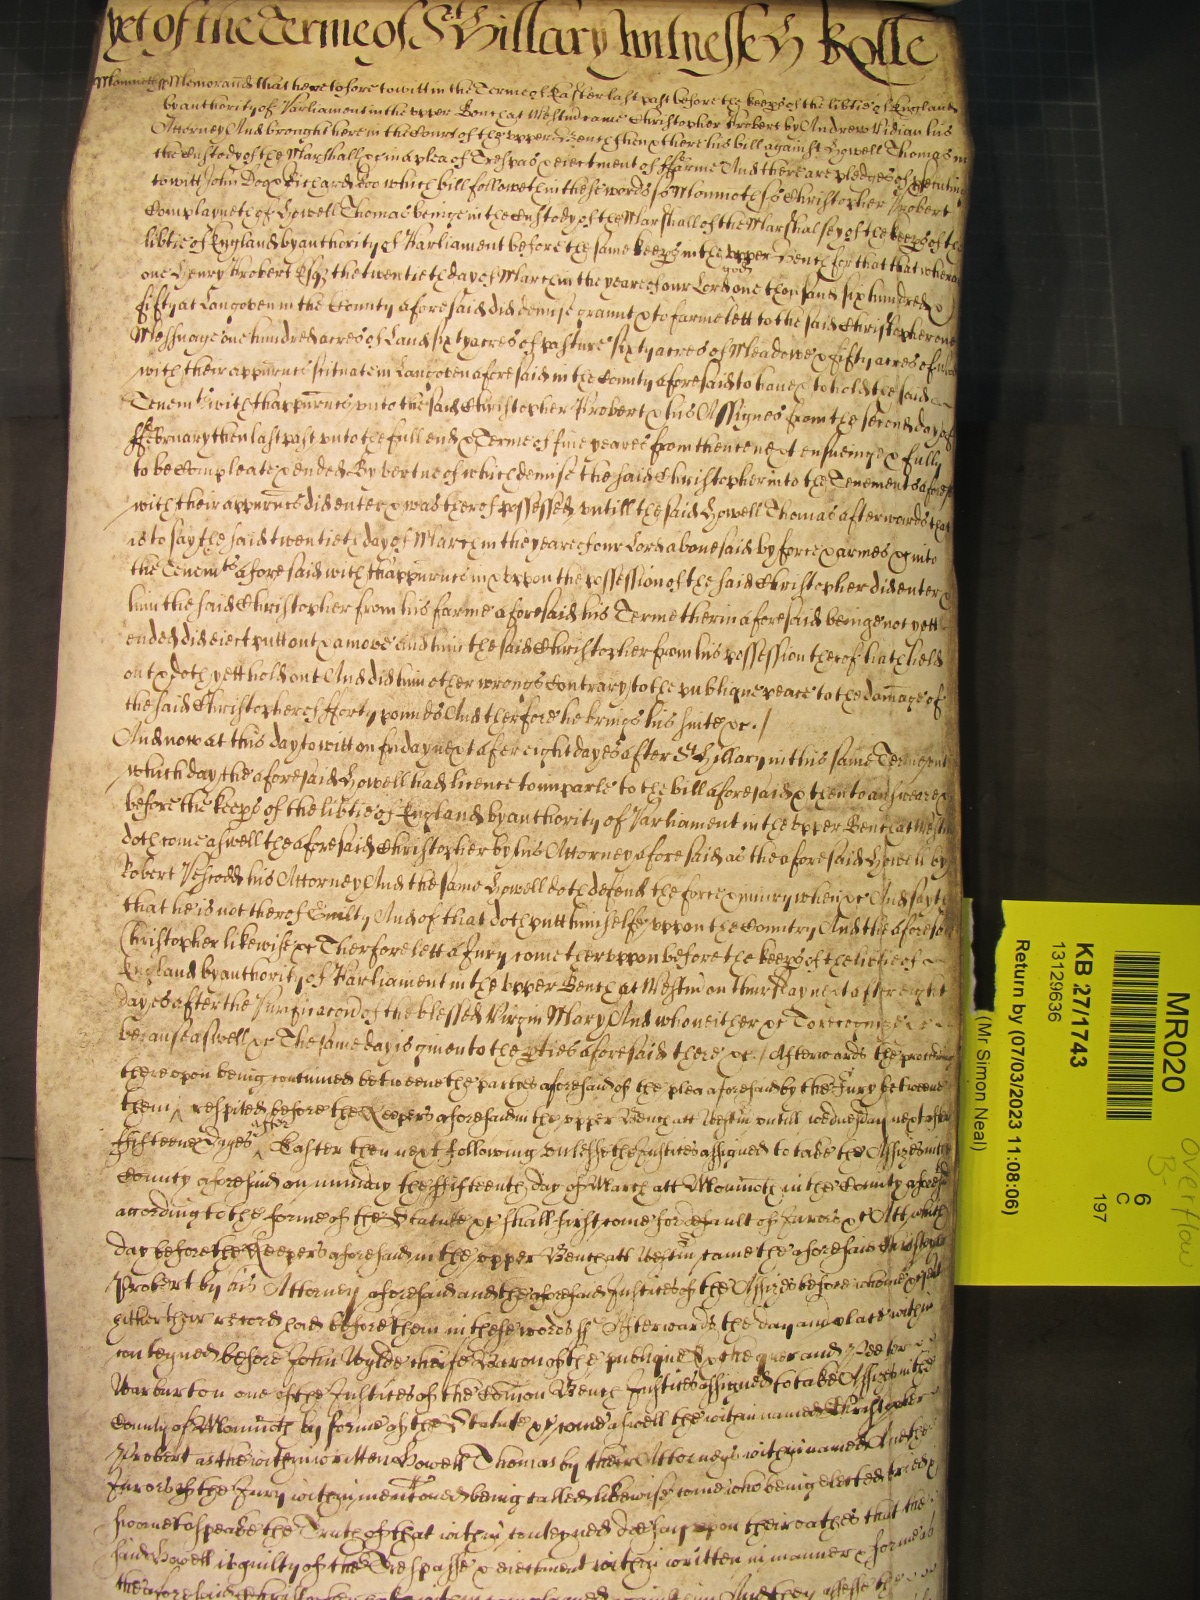 yet of the Terme of St Hillary Witnesseth Rolle
Monmouth ss Memorand that heretofore to witt in the Terme of Easter last past before the keeps of the libtie of England
by authority of Parliament in the upper Bench at Westm came Christopher Probert by Andrew Vidian his
Attorney And brought here in the Court of the upper Bench then & there his bill against Howell Thomas in
the Custody of the Marshall &c in a plea of Trespas & eiectment of ffarme And there are pledges of psecuting
to witt John Doo & Richard Roo which bill followeth in these words ss Monmoth ss Christopher Probert
Complayneth of Howell Thomas beinge in the Custody of the Marshall of the Marshalsey of the keeps of the
libtie of England by authority of Parliament before the same keeps in the upper Bench for that that whereas
one Henry Probert Esqr the twentieth day of March in the yeare of our Lord god one thousand six hundred &
fifty at Langoven in the County aforesaid did demise graunt & to farme lett to the said Christopher one
Messuage one hundred acres of Land sixty acres of pasture sixty acres of Meadowe & fifty acres of
with their appurtncs scituate in Langoven aforesaid in the County aforesaid to have & to hold the said
Tenemts with thappurtncs unto the said Christopher Probert & his Assignes from the second day of
ffebruary then last past unto the full end & Terme of five yeares from thence next ensueinge & fully
to be Compleate & ended By vertue of which demise the said Christopher into the Tenements aforesd
with their appurtncs did enter & was therof possessed untill the said Howell Thomas afterwards that
is to say the said twentieth day of March in the yeare of our Lord abovesaid by force & armes &c into
the Tenemts aforesaid with thappurtncs in & uppon the possession of the said Christopher did enter &
him the said Christopher from his farme aforesaid his Terme therin aforesaid beinge not yett
ended did eiect putt out & amove And him the said Christopher from his possession therof hath held
out & doth yett hold out And did him other wrongs Contrary to the publique peace to the damage of
the said Christopher of fforty pounds And therfore he brings his suite &c./
And now at this day to witt on friday next after eight dayes after St Hillary in this same Terme untill
which day the aforesaid Howell had licence to imparle to the bill aforesaid & then to answeare &c
before the keeps of the libtie of England by authority of Parliament in the upper Bench at Westm
doth come aswell the aforesaid Christopher by his Attorney aforesaid as the aforesaid Howell by
Robert his Attorney And the same Howell doth defend the force & iniury when &c And sayth
that he is not therof Guilty And of that doth putt himselfe uppon the Country And the aforesaid
Christopher likewise &c Therfore lett a Jury come theruppon before the keeps of the libtie of
England by authority of Parliament in the upper Bench at Westm on thursday next after eight
dayes after the Purificacon of the blessed Virgin Mary And who neither &c To recognize &c
because aswell &c The same day is given to the pties aforesaid there &c./ Afterwards the proceedings
thereopon being continued betweene the partyes aforesaid of the plea aforesaid by the Jury betweene
them respited before the Keepers aforesaid in the upper Bench att Westm untill wednesday next after
ffifteene dayes after Easter then next following unlesse the Justices assigned to take the Assizes in the
County aforesaid on munday the ffifteenth day of March att Monmoth in the County aforesd
according to the forme of the Statute &c shall first come for default of Jurors &c Att which
day before the Keepers aforesaid in the upper Bench att Westm came the aforesaid Christopher
Probert by his Attorney aforesaid and the aforesaid Justices of the Assizes before whome &c sent
hither their record had before them in these words ss Afterwards the day and place within
conteyned before John Wylde cheife Baron of the publique Exchequer and Peeter
Warburton one of the Justices of the Comon Bench Justices assigned to take Assizes in the
County of Monmoth by forme of the Statute &c come aswell the within named Christopher
Probert as the within written Howell Thomas by their Attorneys within named And the
Jurors of the Jury within mentoned being called likewise come who being elected tried &
sworne to speake the Truth of that within conteyned doe say upon their oathes that the
said Howell is guilty of the Trespasse & eiectment within written in manner & forme as
the aforesaid Christopher against him And they assesse the
MR020
KB 27/1743
13129636
Return by (07/03/2023 11:08:06)
(Mr Simon Neal)
6
C
197
overflow
B-